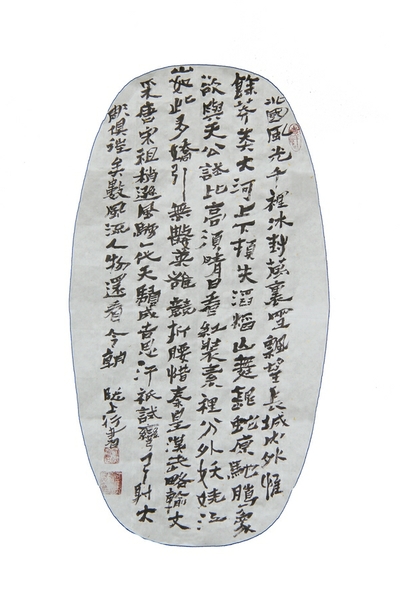 北國風光千裡冰封萬裏雪飄望長城內外惟
餘莽莽大河上下頓失滔滔山舞銀蛇原馳臘象
欲與天公試比高須晴日看紅裝素裡分外妖嬈江
山如此多嬌引無數英雄競折腰惜秦皇漢武略輸文
采唐宋祖稍遜風騷一代天驕成吉思汗祇識彎弓射大
雕俱往矣數風流人物還看今朝 隴上行